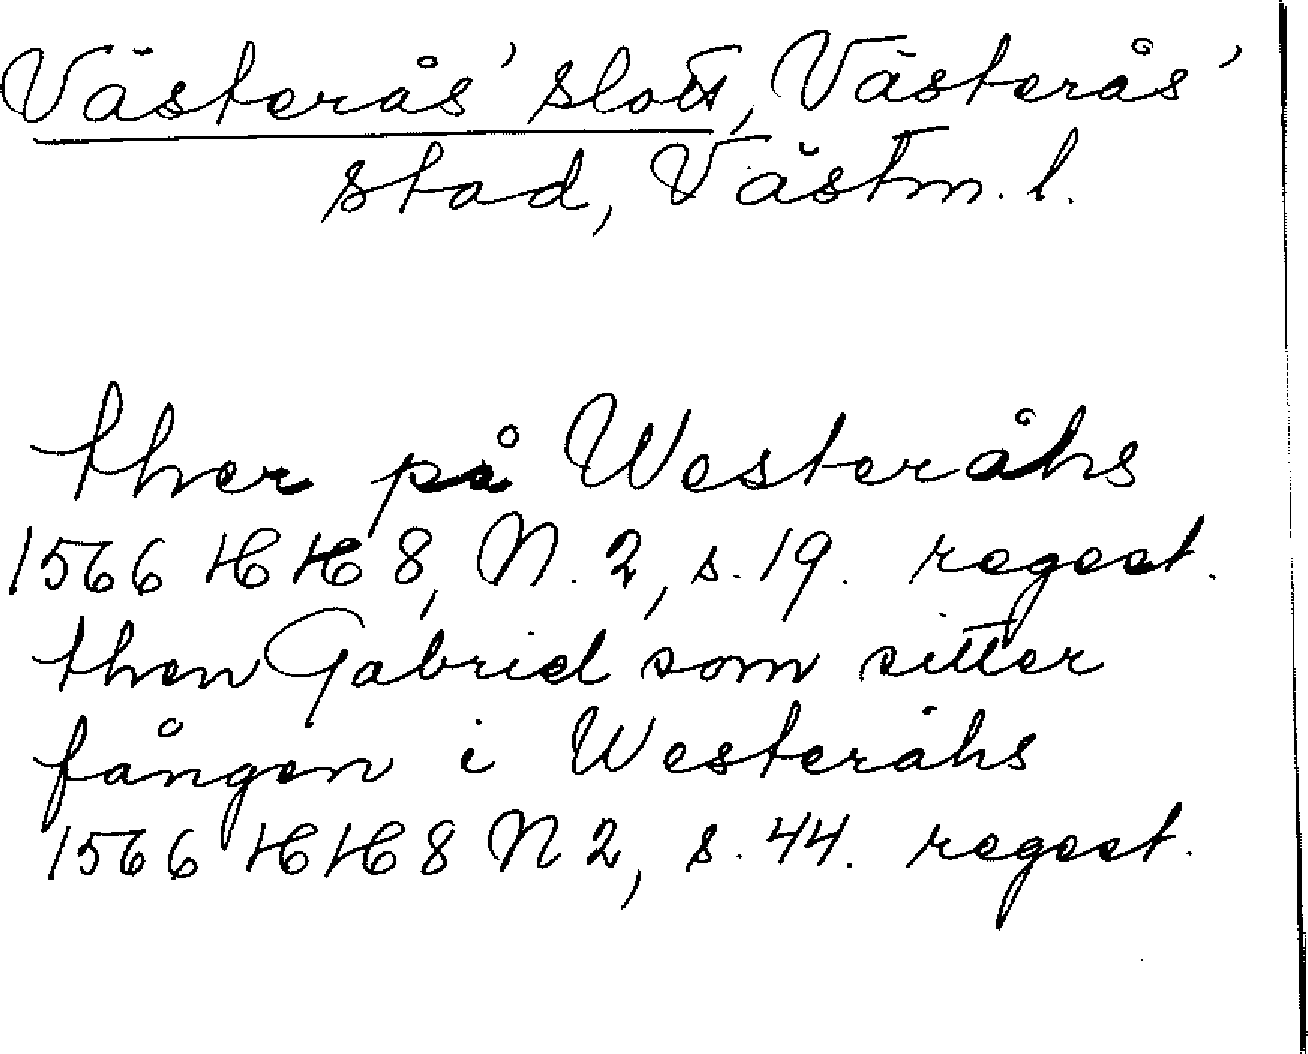 Västerås' slott, Västerås'
stad, Västm. l.
ther på Westeråhs
1566 HH 8, N. 2, s. 19. regest.
then Gabriel som sitter
fången i Westeråhs
1566 HH 8 N 2, s. 44. regest.